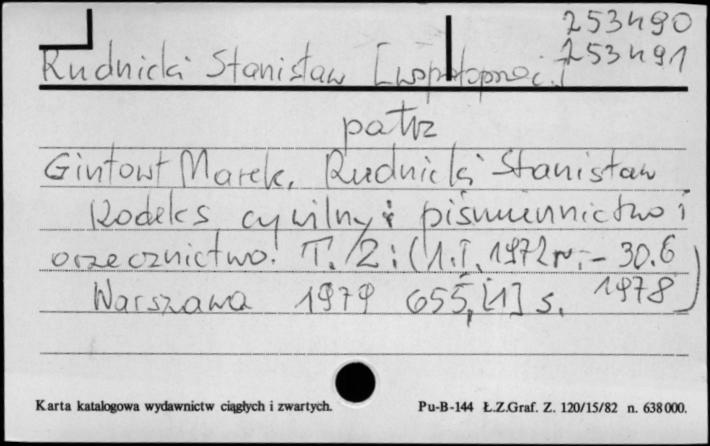 253490
253491
Rudnicki Stanisław [współoprac.]
patrz
Gintowt Marek, Rudnicki Stanisław
Kodeks cywilny: piśmiennictwo i
orzecznictwo. T. 2: (1.I.1972 r. – 30.6
1978)
Warszawa 1979 655, [1] s.
Karta katalogowa wydawnictw ciągłych i zwartych.
Pu-B-144 Ł.Z.Graf. Z. 120/15/82 n. 638000.